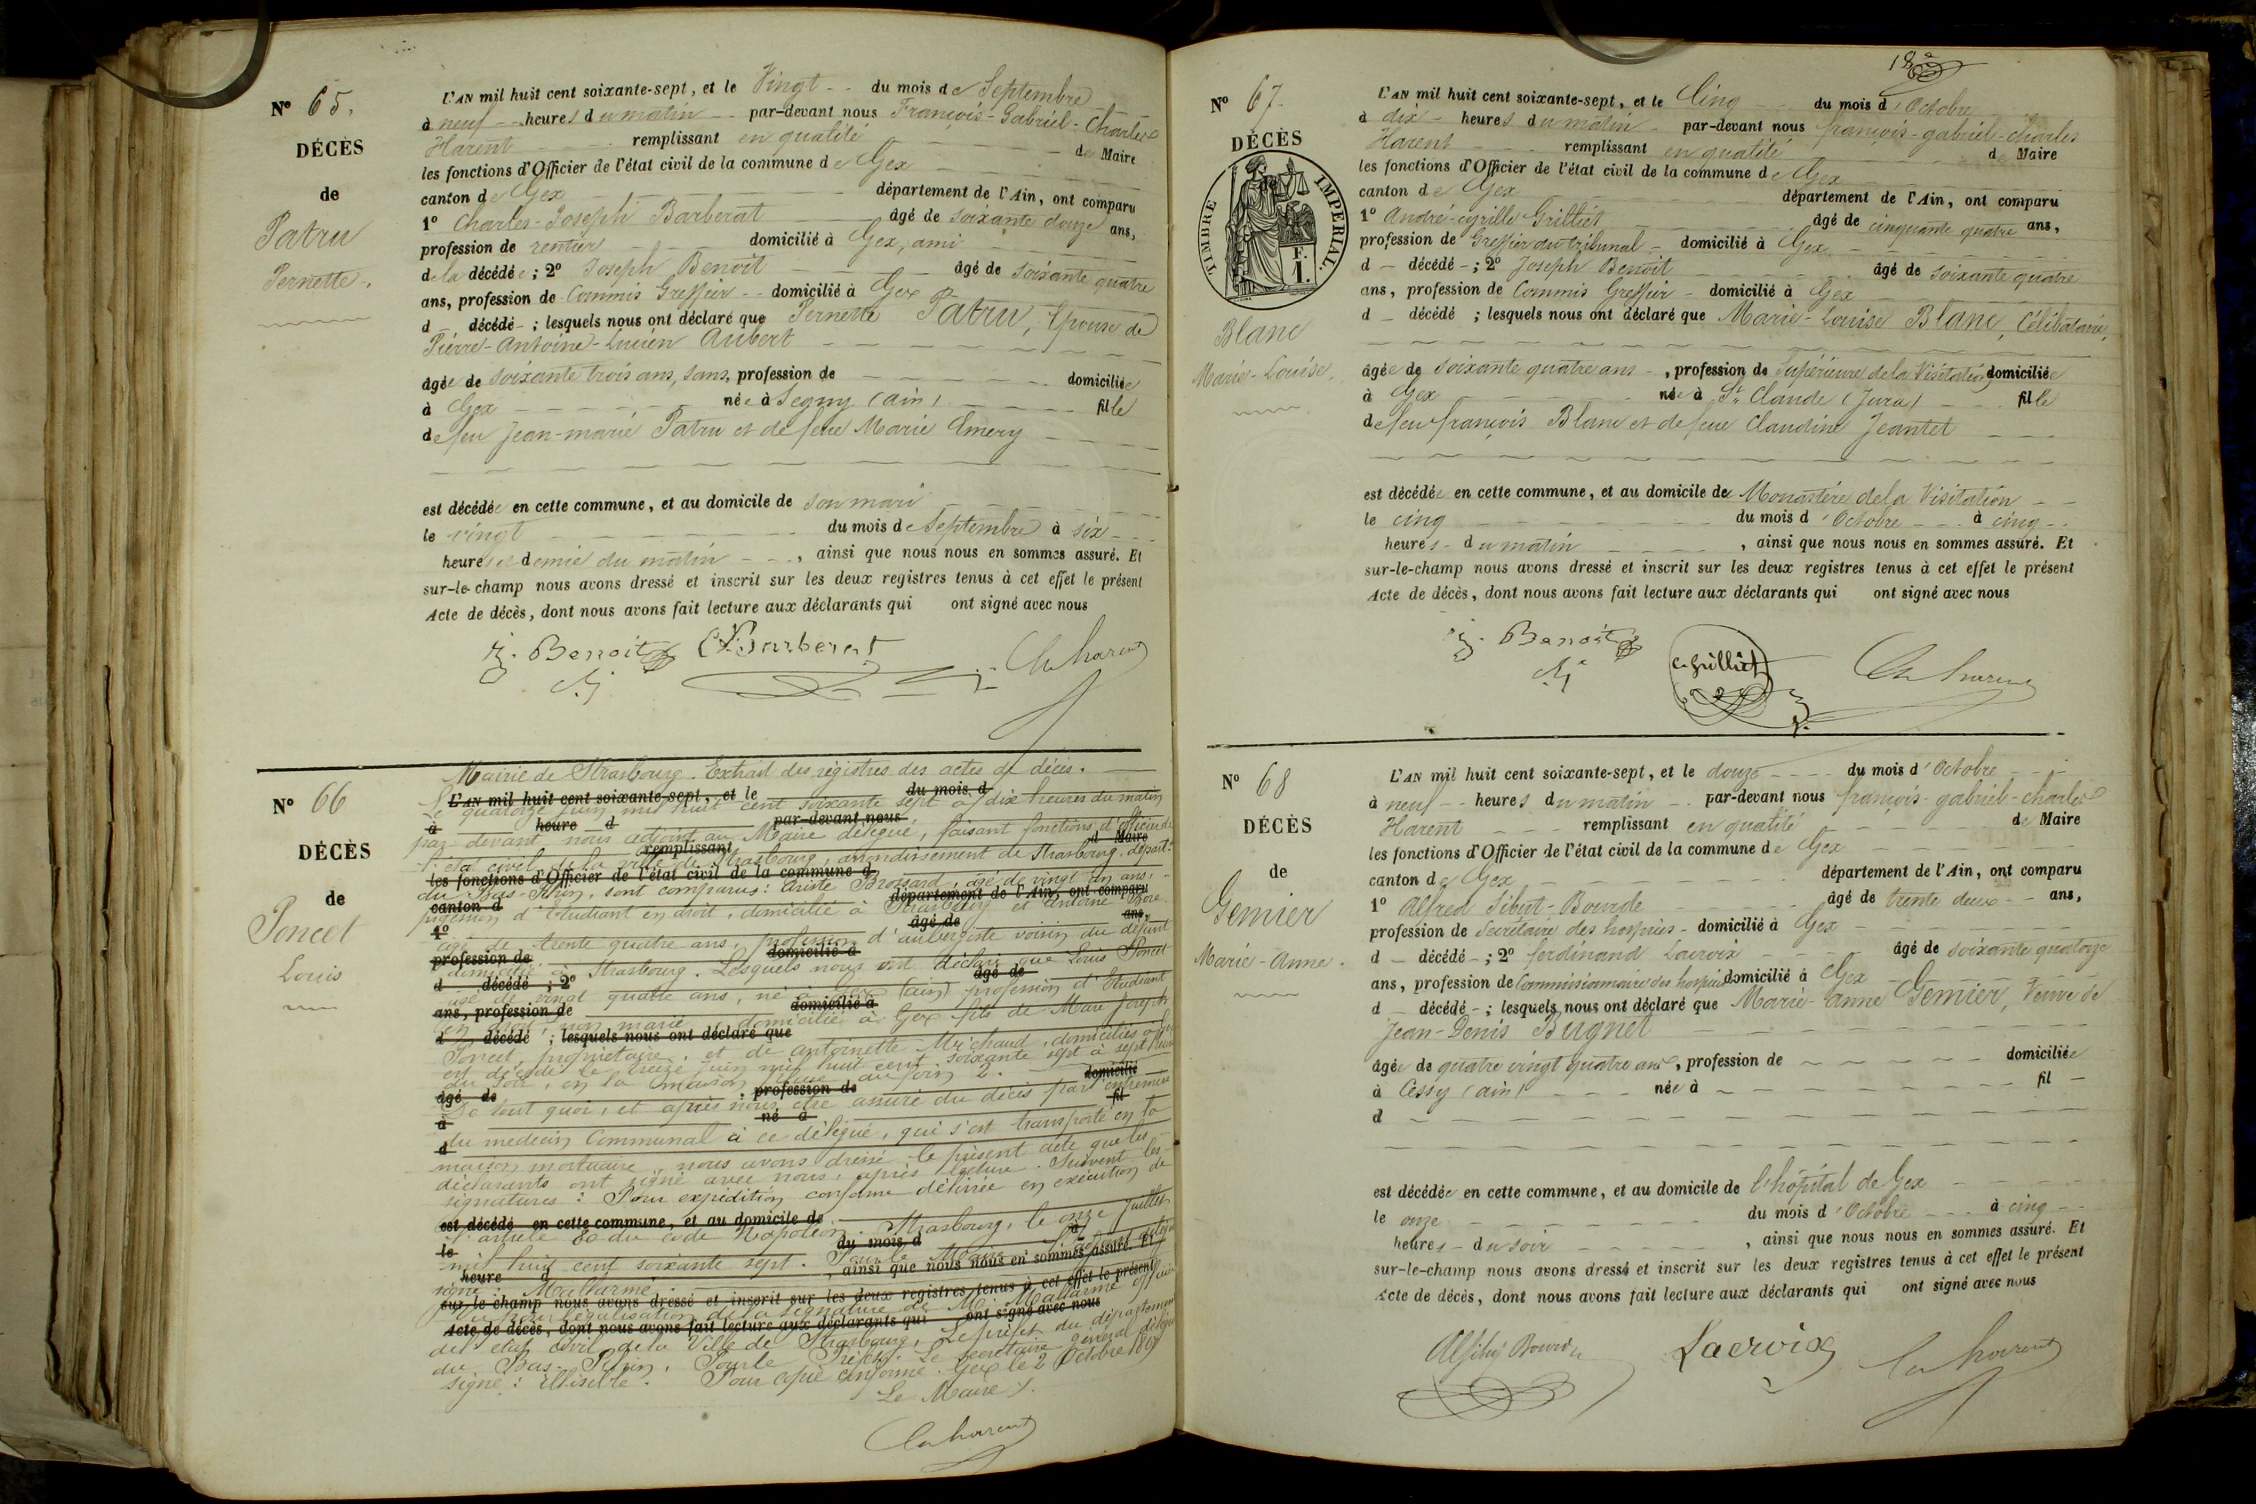 N° 65.
DÉCÈS
de
Patru
Pernette.
L'AN mil huit cent soixante-sept, et le Vingt du mois de Septembre
à neuf heures du matin par-devant nous François-Gabriel-Charles
Harent remplissant en qualité de Maire
les fonctions d'Officier de l'état civil de la commune de Gex
canton de Gex département de l'Ain, ont comparu
1° Charles-Joseph Barberat âgé de soixante douze ans,
profession de rentier domicilié à Gex, ami
de la décédée; 2° Joseph Benoit âgé de soixante quatre
ans, profession de Commis Greffier domicilié à Gex
d décédé; lesquels nous ont déclaré que Pernette Patru, Epouse de
Pierre-Antoine-Lucien Aubert
âgée de soixante trois ans, sans, profession de domiciliée
à Gex née à Segny (ain) fille
de feu Jean-marie Patru et de feue Marie Emery
est décédée en cette commune, et au domicile de son mari
le vingt du mois de Septembre à six
heures et demie du matin, ainsi que nous nous en sommes assuré. Et
sur-le-champ nous avons dressé et inscrit sur les deux registres tenus à cet effet le présent
Acte de décès, dont nous avons fait lecture aux déclarants qui ont signé avec nous
j. Benoit CJBarberat Ch harent
N° 66
DÉCÈS
de
Poncet
Louis
Mairie de Strasbourg. Extrait des régistres des actes de décès.
L'AN mil huit cent soixante-sept, et le du mois d
Le quatorze juin mil huit cent soixante sept à dix heures du matin
à heure d par-devant nous
par devant nous adjoint au Maire délégué, faisant fonctions d'officier de
remplissant d Maire
l'état civil de la ville de Strasbourg, arrondissement de Strasbourg, départ.t
les fonctions d'Officier de l'état civil de la commune d
du Bas-Rhin, sont comparus: Ariste Brossard, âgé de vingt un ans,
canton d département de l'Ain, ont comparu
profession d'Etudiant en droit, domicilié à Strasbourg et Antoine
1° âgé de ans,
âgé de trente quatre ans, profession d'aubergiste voisin du défunt
profession de domicilié à
domicilié à Strasbourg. Lesquels nous ont déclaré que Louis Poncet
d décédé; 2° âgé de
âgé de vingt quatre ans, né à Gex (ain) profession d'Etudiant
ans, profession de domicilié à
en droit, non marié, domicilié à Gex fils de Marie Joseph
d décédé; lesquels nous ont déclaré que
Poncet, propriétaire, et de Antoinette Michaud, domiciliés à Gex
est décédé le treize juin mil huit cent soixante sept à sept heures
du soir, en la maison
âgé de, profession de domicilié
De tout quoi, et après nous être assuré du décès par l'entremise
à né à fil
du medecin Communal à ce délégué, qui s'est transporté en la
d
maison mortuaire, nous avons dressé le présent acte que les
déclarants ont signé avec nous, après lecture. Suivent les
signatures: Pour expédition conforme délivrée en exécution de
est décédé en cette commune, et au domicile de
l'article 80 du code Napoléon. Strasbourg, le onze juillet
le du mois d à
mil huit cent soixante sept. Pour le Maire
heure d, ainsi que nous nous en sommes assuré. Et
signé: Mallarmé.
sur-le-champ nous avons dressé et inscrit sur les deux registres tenus à cet effet le présent
Vu pour légalisation de la signature de Mr Mallarmé officier
Acte de décès, dont nous avons fait lecture aux déclarants qui ont signé avec nous
de l'état civil de la Ville de Strasbourg, Le préfet du département
du Bas-Rhin, Pour le Préfet. Le secrétaire général délégué
signé: illisible. Pour copie conforme Gex le 2 Octobre 1867
Le Maire
Ch harent
18e
N° 67.
DÉCÈS
TIMBRE IMPERIAL.
F.
1.
Blanc
Marie-Louise.
L'AN mil huit cent soixante-sept, et le Cinq du mois d'Octobre
à dix heures du matin par-devant nous françois-gabriel-charles
Harent remplissant en qualité d Maire
les fonctions d'Officier de l'état civil de la commune de Gex
canton de Gex département de l'Ain, ont comparu
1° André-cyrille Grilliet âgé de cinquante quatre ans,
profession de Greffier du tribunal domicilié à Gex
d décédé; 2° Joseph Benoit âgé de soixante quatre
ans, profession de Commis Greffier domicilié à Gex
d décédé; lesquels nous ont déclaré que Marie-Louise Blanc, Célibataire,
âgée de soixante quatre ans, profession de Supérieure de la Visitation domiciliée
à Gex née à St Claude (Jura) fille
de feu françois Blanc et de feue Claudine Jeantet
est décédée en cette commune, et au domicile de Monastère de la Visitation
le cinq du mois d'Octobre à cinq
heures du matin, ainsi que nous nous en sommes assuré. Et
sur-le-champ nous avons dressé et inscrit sur les deux registres tenus à cet effet le présent
Acte de décès, dont nous avons fait lecture aux déclarants qui ont signé avec nous
j. Benoit c. grilliet Ch harent
N° 68
DÉCÈS
de
Gemier
Marie-Anne.
L'AN mil huit cent soixante-sept, et le douze du mois d'Octobre
à neuf heures du matin par-devant nous françois-gabriel-charles
Harent remplissant en qualité de Maire
les fonctions d'Officier de l'état civil de la commune de Gex
canton de Gex département de l'Ain, ont comparu
1° Alfred Sibut-Bourde âgé de trente deux ans,
profession de Secrétaire des hospices domicilié à Gex
d décédé; 2° ferdinand Lacroix âgé de soixante quatorze
ans, profession de Commissionnaire des hospices domicilié à Gex
d décédé; lesquels nous ont déclaré que Marie-anne Gemier, Veuve de
Jean-Denis Bugnet
âgée de quatre vingt quatre ans, profession de domiciliée
à Cessy (ain) née à fil
d
est décédée en cette commune, et au domicile de l'hôpital de Gex
le onze du mois d'Octobre à cinq
heures du soir, ainsi que nous nous en sommes assuré. Et
sur-le-champ nous avons dressé et inscrit sur les deux registres tenus à cet effet le présent
Acte de décès, dont nous avons fait lecture aux déclarants qui ont signé avec nous
Lacroix Ch harent